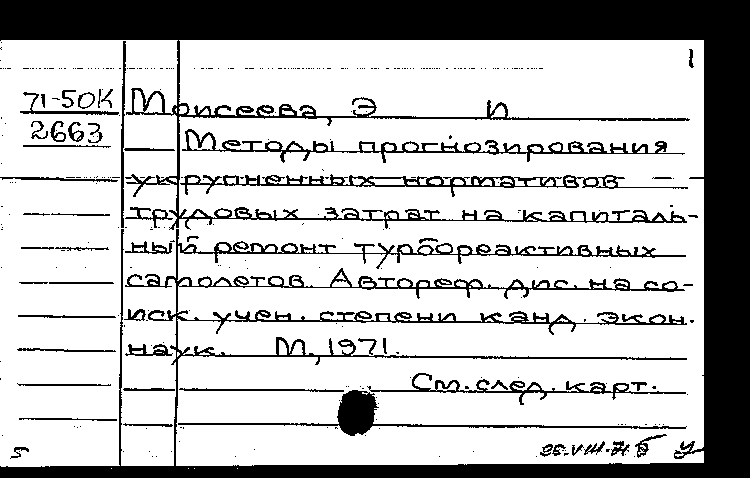 1
71-50К Моисеева, Э И
2663 Методы прогнозирования
укрупненных нормативов
трудовых затрат на капиталь-
ный ремонт турбореактивных
самолетов. Автореф. дис. на со-
иск. учен. степени канд. экон.
наук. М., 1971.
См. след. карт.
5